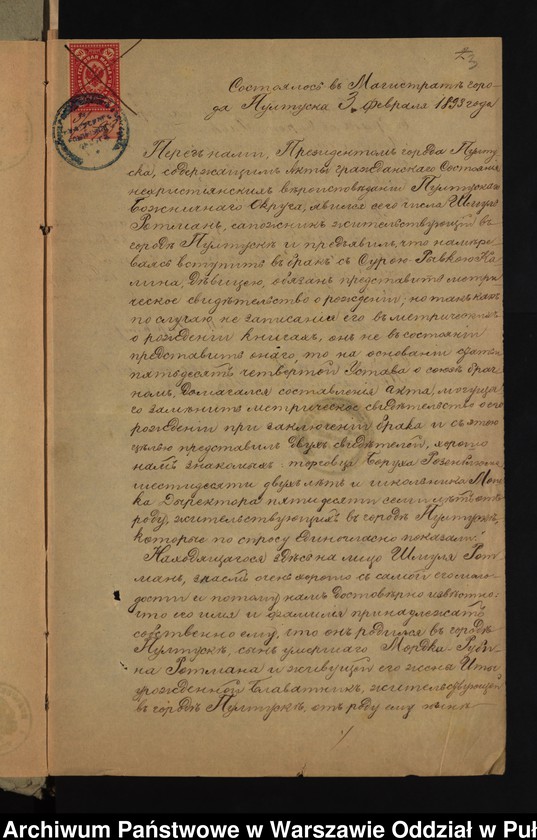 3
Состоялось въ Магистратѣ горо-
да Пултуска 3 Февраля 1893 года
Передъ нами, Президентомъ города Пулту-
ска, содержащимъ Акты гражданскаго Состоянія
нехристіянскихъ вѣроисповѣданій Пултускаго
Божничнаго Округа, явился сего числа Шмуль
Ротманъ, сапожникъ жительствующій въ
городѣ Пултускѣ и предъявилъ, что намѣре-
ваясь вступить въ бракъ съ Сурою-Рывкою Ка-
лина, Дѣвицею, обязанъ представить метри-
ческое свидѣтельство о рожденіи; но такъ какъ
по случаю не записанія его въ метрическихъ
о рожденіи книгахъ, онъ не въ состояніи
представить онаго, то на основаніи статьи
пятьдесятъ четвертой Устава о союзѣ брач-
номъ, домагался составленія Акта, могуща-
го замѣнить метрическое свидѣтельство о его
рожденіи при заключеніи брака и съ этою
цѣлью представилъ двухъ свидѣтелей, хорошо
намъ знакомыхъ: торговца Боруха
шестидесяти двухъ лѣтъ и школьника
ка Дыректора пятидесяти семи лѣтъ отъ
роду, жительствующихъ въ городѣ Пултускѣ,
которые по спросу единогласно показали:
Находящагося здѣсь на лицо Шмуля Рот-
манъ, знаемъ очень хорошо съ самой его моло-
дости и потому намъ достовѣрно извѣстно:
что его имя и фамилія принадлежатъ
собственно ему, что онъ родился въ городѣ
Пултускѣ, сынъ умершаго Мордка Руби-
на Ротмана и живущей его жены Иты
урожденной Блаватникъ, жительствующей
въ городѣ Пултускѣ, отъ роду ему нынѣ
Archiwum Państwowe w Warszawie Oddział w Puł